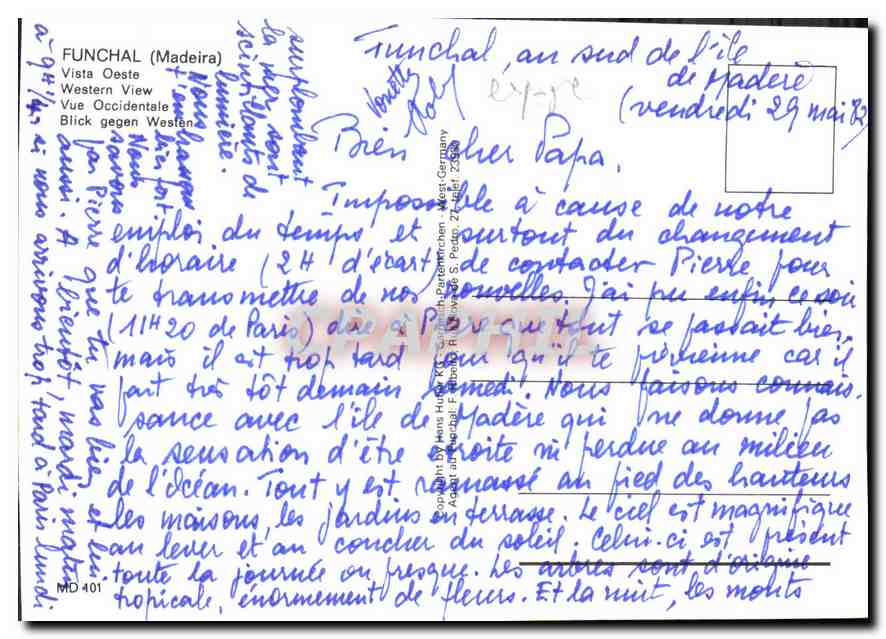 FUNCHAL (Madeira)
Vista Oeste
Western View
Vue Occidentale
Blick gegen Westen
Funchal, au sud de l'île
de Madère
(vendredi 29 mai 82)
Bien cher Papa,
Impossible à cause de notre
emploi du temps et surtout du changement
d'horaire (2H d'écart) de contacter Pierre pour
te transmettre de nos nouvelles. J'ai pu enfin ce soir
(11H20 de Paris) dire à Pierre que tout se passait bien
mais il est trop tard pour qu'il te prévienne car il
part très tôt demain samedi. Nous faisons connais-
sance avec l'île de Madère qui ne donne pas
la sensation d'être étroite ni perdue au milieu
de l'Océan. Tout y est ramassé au pied des hauteurs
les maisons, les jardins en terrasse. Le ciel est magnifique
au lever et au coucher du soleil. Celui-ci est présent
toute la journée ou presque. Les arbres sont d'origine
tropicale, énormement de fleurs. Et la nuit, les monts
surplombant
la mer sont
scintillants de
lumière.
Nous
t'embrassons
bien fort.
Nous
savons
par Pierre que tu vas bien et lui
aussi. A bientôt, mardi matin
à 9H1/4, si nous arrivons trop tard à Paris lundi
Copyright by Hans Huber KG · Garmisch-Partenkirchen · West-Germany
Agent au Funchal: F. Ribeiro, Rua Nova de S. Pedro, 27, Telef. 23930
CPAPHIL
MD 401